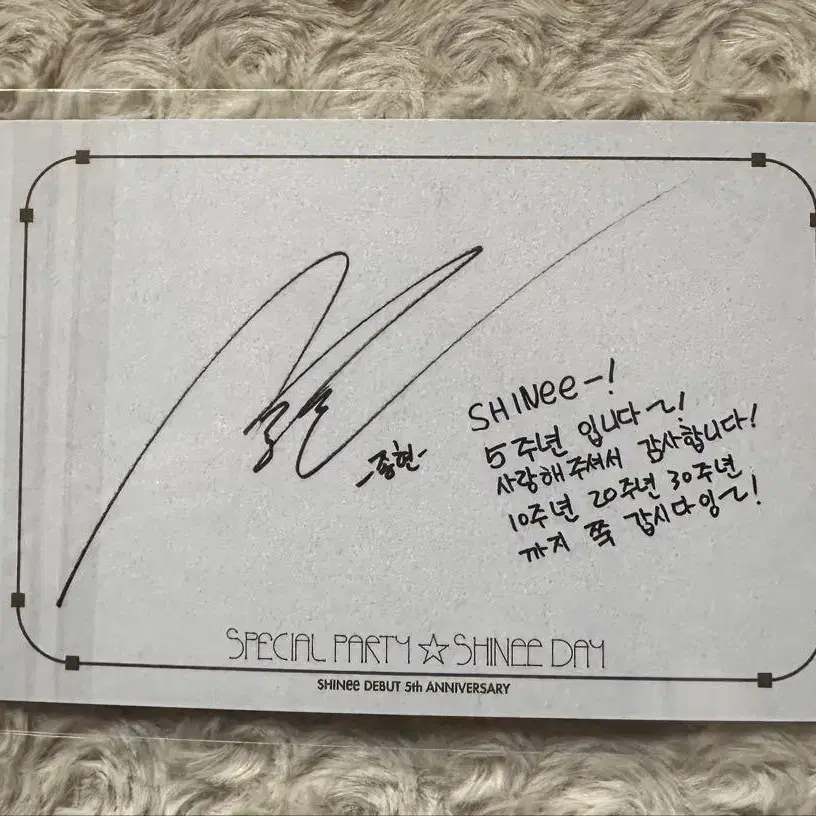 -종현-
SHINee-!
5주년 입니다~!
사랑해주셔서 감사합니다!
10주년 20주년 30주년
까지 쭉 갑시다잉~!
SPECIAL PARTY ☆ SHINEE DAY
SHINee DEBUT 5th ANNIVERSARY